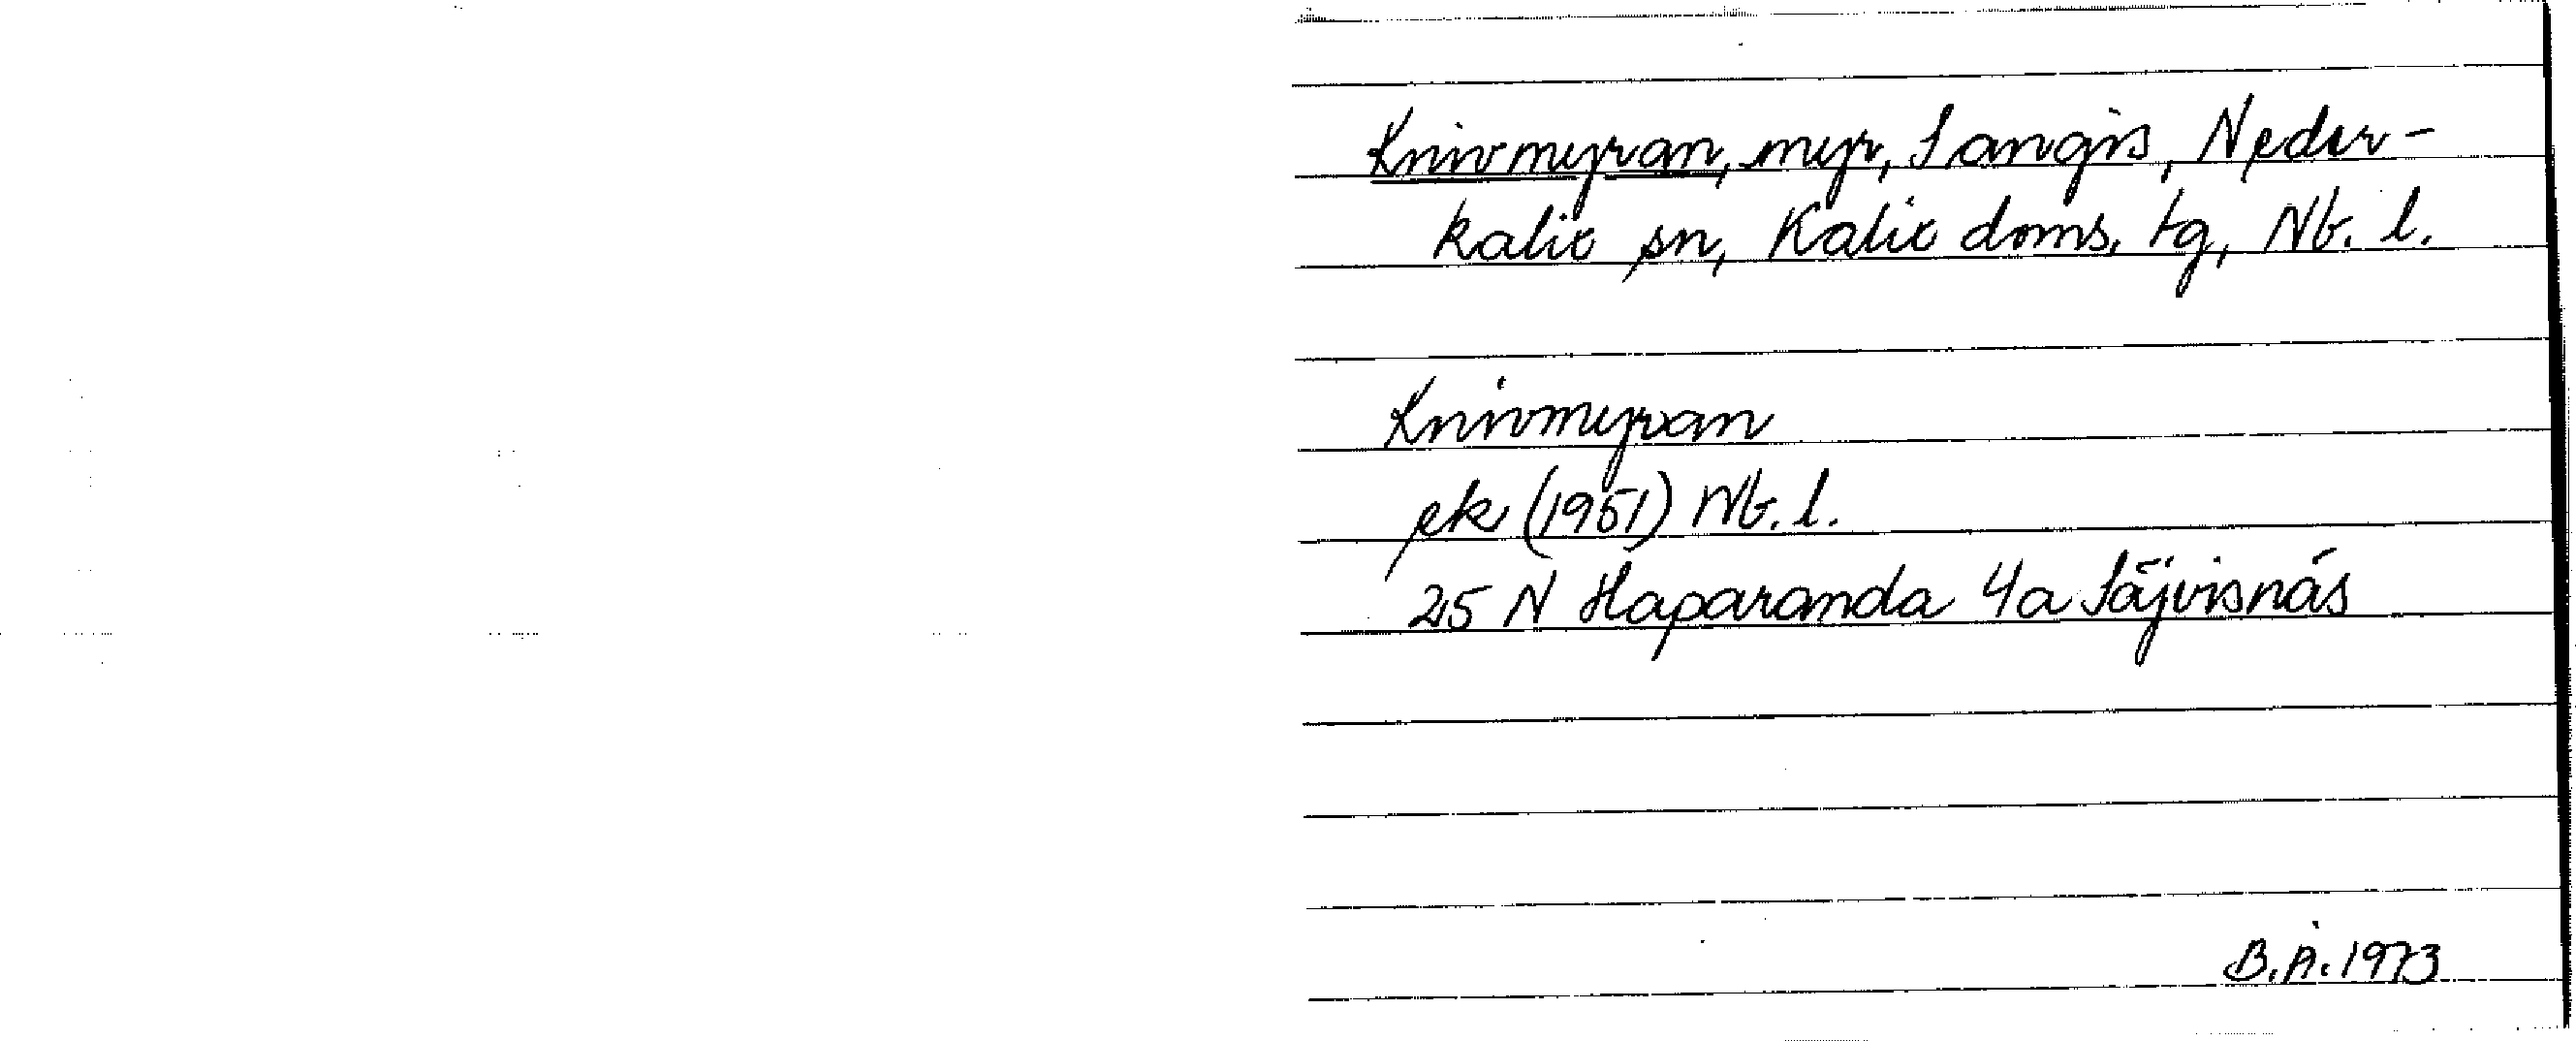 Knivmyran, myr, Sangis, Neder-
kalix sn, Kalix doms. tg, Nb. l.
Knivmyran
ek (1951) Nb. l.
25 N Haparanda 4a Säjvisnäs
B.Å. 1973